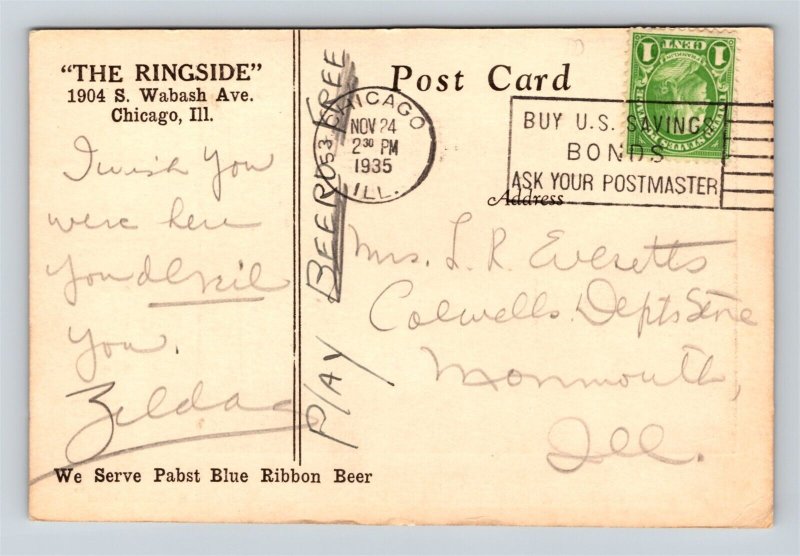 "THE RINGSIDE"
1904 S. Wabash Ave.
Chicago, Ill.
I wish you
were here
you devil
you.
Zelda
We Serve Pabst Blue Ribbon Beer
PLAY BEERO FREE
Post Card
CHICAGO
NOV 24
2 30 PM
1935
ILL.
BUY U.S. SAVINGS
BONDS
ASK YOUR POSTMASTER
1 CENT 1
Address
Mrs. L. R. Everetts
Colwells Depts Store
Monmouth,
Ill.